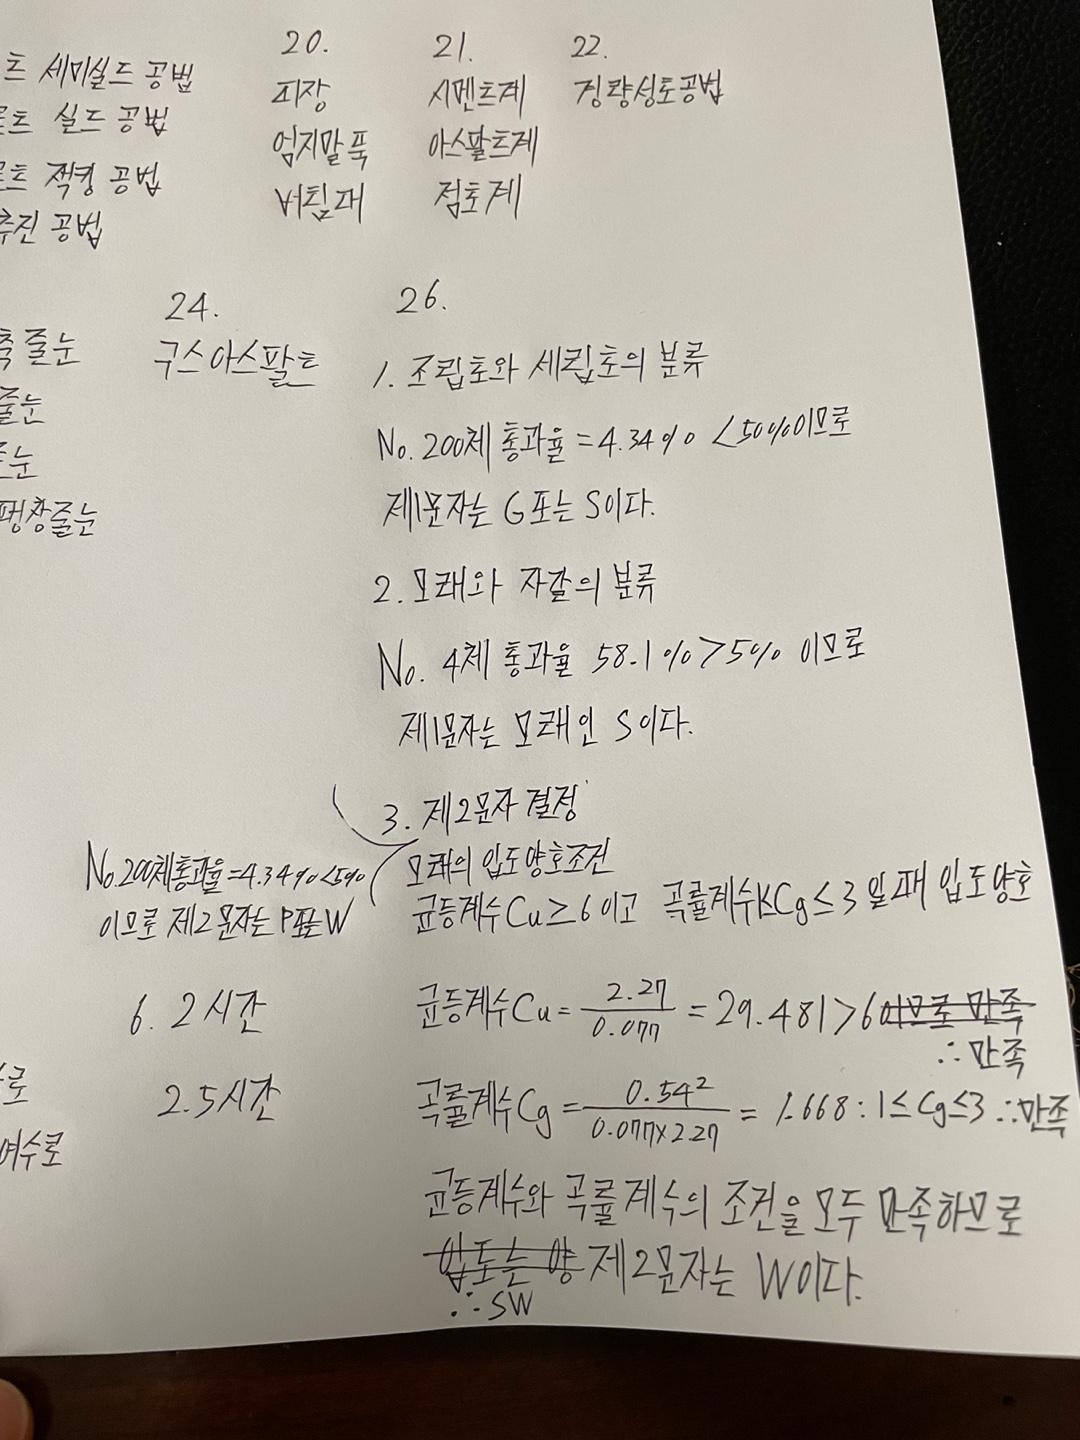 세미실드 공법
실드 공법
잭킹 공법
추진 공법
20.
띠장
엄지말뚝
버팀대
21.
시멘트계
아스팔트계
점토계
22.
경량성토공법
줄눈
줄눈
줄눈
팽창줄눈
24.
구스아스팔트
26.
1. 조립토와 세립토의 분류
No. 200체 통과율 = 4.34% < 50%이므로
제1문자는 G 또는 S이다.
2. 모래와 자갈의 분류
No. 4체 통과율 58.1% > 5% 이므로
제1문자는 모래인 S이다.
3. 제2문자 결정
No.200체통과율=4.34%<5%
이므로 제2문자는 P또는W
모래의 입도양호조건
균등계수 Cu ≥ 6 이고 곡률계수 1≤Cg≤3 일 때 입도양호
균등계수 Cu = 2.27/0.077 = 29.481 > 6 이므로 만족
∴ 만족
곡률계수 Cg = 0.54²/0.077×2.27 = 1.668 : 1≤Cg≤3 ∴만족
균등계수와 곡률계수의 조건을 모두 만족하므로
입도는 양 제2문자는 W이다.
∴ SW
6. 2시간
2.5시간
여수로